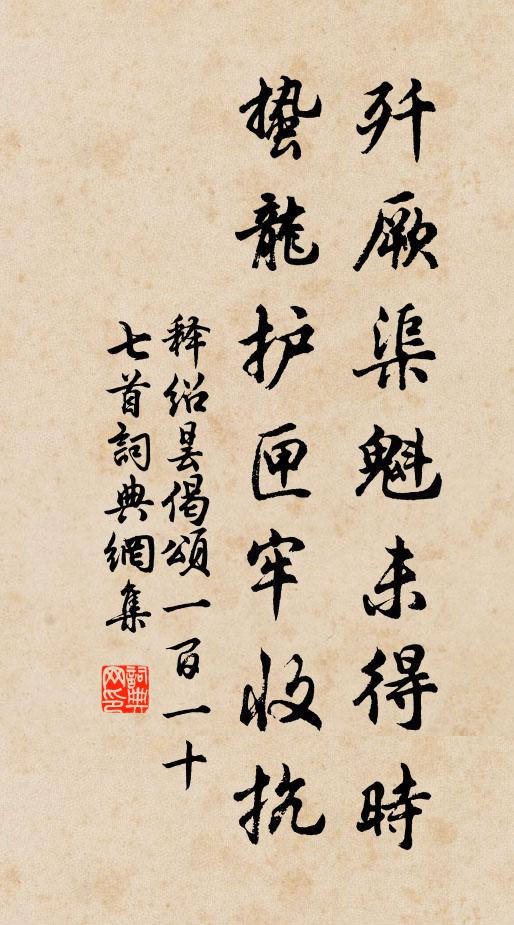 歼厥渠魁未得時
蛰龍护匣牢收抗
释绍昙偈頌一百一十
七首詞典網集
詞典网印